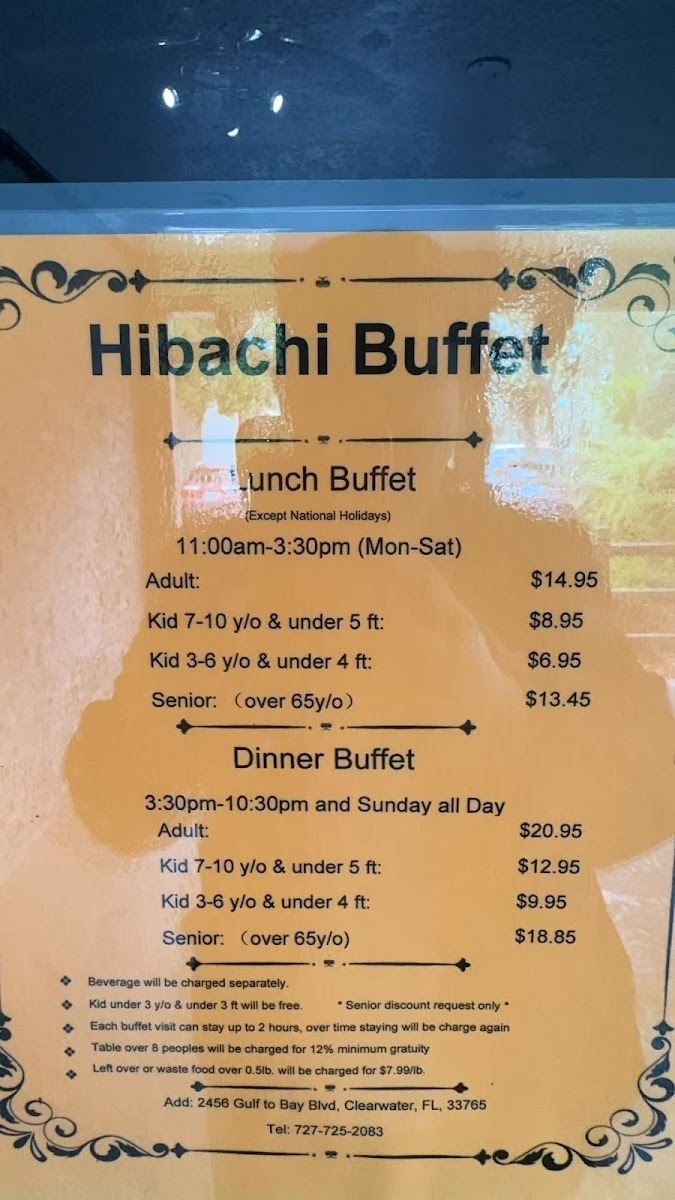 Hibachi Buffet
Lunch Buffet
(Except National Holidays)
11:00am-3:30pm (Mon-Sat)
Adult: $14.95
Kid 7-10 y/o & under 5 ft: $8.95
Kid 3-6 y/o & under 4 ft: $6.95
Senior: （over 65y/o） $13.45
Dinner Buffet
3:30pm-10:30pm and Sunday all Day
Adult: $20.95
Kid 7-10 y/o & under 5 ft: $12.95
Kid 3-6 y/o & under 4 ft: $9.95
Senior: （over 65y/o) $18.85
❖ Beverage will be charged separately.
❖ Kid under 3 y/o & under 3 ft will be free. * Senior discount request only *
❖ Each buffet visit can stay up to 2 hours, over time staying will be charge again
❖ Table over 8 peoples will be charged for 12% minimum gratuity
❖ Left over or waste food over 0.5lb. will be charged for $7.99/lb.
Add: 2456 Gulf to Bay Blvd, Clearwater, FL, 33765
Tel: 727-725-2083